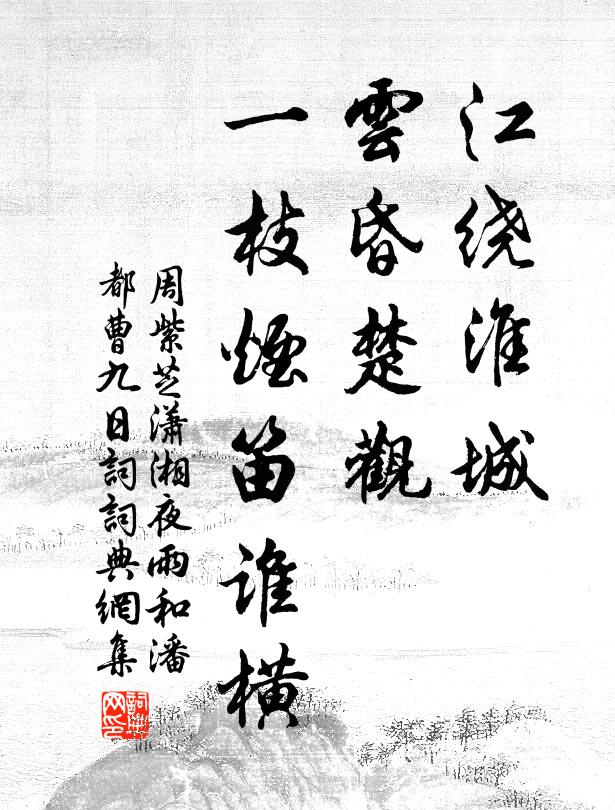 江绕淮城
雲昏楚觀
一枝煙笛誰橫
周紫芝瀟湘夜雨和潘
都曹九日詞詞典網集